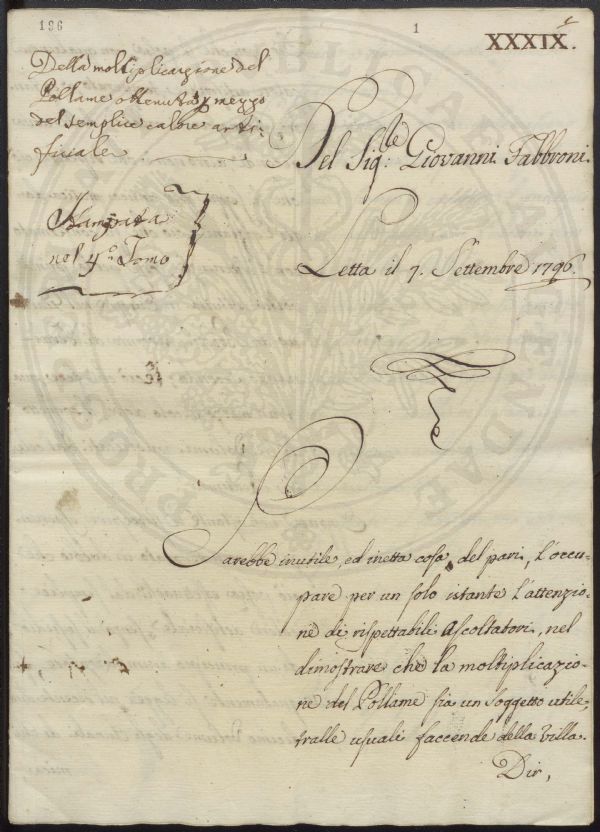 196
1
XXXIX.
Della moltiplicazione del
Pollame ottenuta p mezzo
del semplice calore arti-
ficiale
Stampata
nel 4.º Tomo
Del Sig.le Giovanni Fabbroni.
Letta il 7. Settembre 1796.
Sarebbe inutile, ed inetta cosa del pari, l'occu-
pare per un solo istante l'attenzio-
ne di rispettabili Ascoltatori, nel
dimostrare che la moltiplicazio-
ne del Pollame sia un soggetto utile,
tralle usuali faccende della Villa.
Dir,
PUBLICAE
PROSPERITATI
AUGENDAE